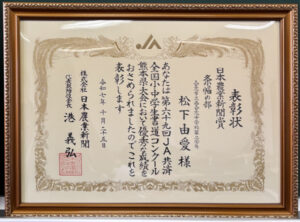 JA
表彰状
日本農業新聞賞
条幅の部
松下由愛 様
あなたは第六十九回JA共済
全国小・中学生書道コンクール
熊本県大会において優秀な成績を
おさめられましたのでこれを
表彰します
令和七年十月二十五日
株式会社 日本農業新聞
港 義弘